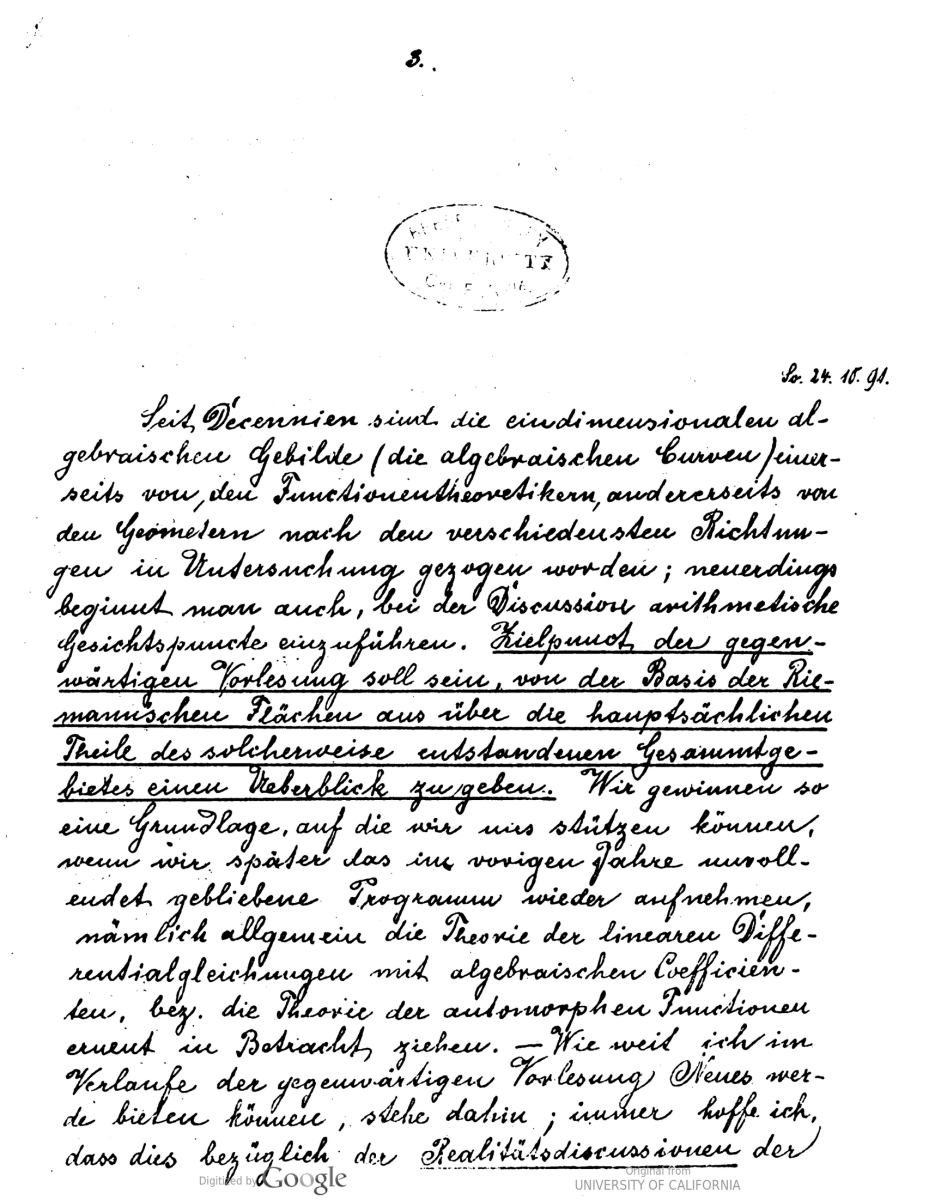 3.
UNIVERSITY
So. 24. 10. 91.
Seit Decennien sind die eindimensionalen al-
gebraischen Gebilde (die algebraischen Curven) einer-
seits von den Functionentheoretikern, andererseits von
den Geometern nach den verschiedensten Richtun-
gen in Untersuchung gezogen worden; neuerdings
beginnt man auch, bei der Discussion arithmetische
Gesichtspuncte einzuführen. Zielpunct der gegen-
wärtigen Vorlesung soll sein, von der Basis der Rie-
mann'schen Flächen aus über die hauptsächlichen
Theile des solcherweise entstandenen Gesammtge-
bietes einen Ueberblick zu geben. Wir gewinnen so
eine Grundlage, auf die wir uns stützen können,
wenn wir später das im vorigen Jahre unvoll-
endet gebliebene Programm wieder aufnehmen,
nämlich allgemein die Theorie der linearen Diffe-
rentialgleichungen mit algebraischen Coefficien-
ten, bez. die Theorie der automorphen Functionen
erneut in Betracht ziehen. — Wie weit ich im
Verlaufe der gegenwärtigen Vorlesung Neues wer-
de bieten können, stehe dahin; immer hoffe ich,
dass dies bezüglich der Realitätsdiscussionen der
Digitized by Google
Original from
UNIVERSITY OF CALIFORNIA